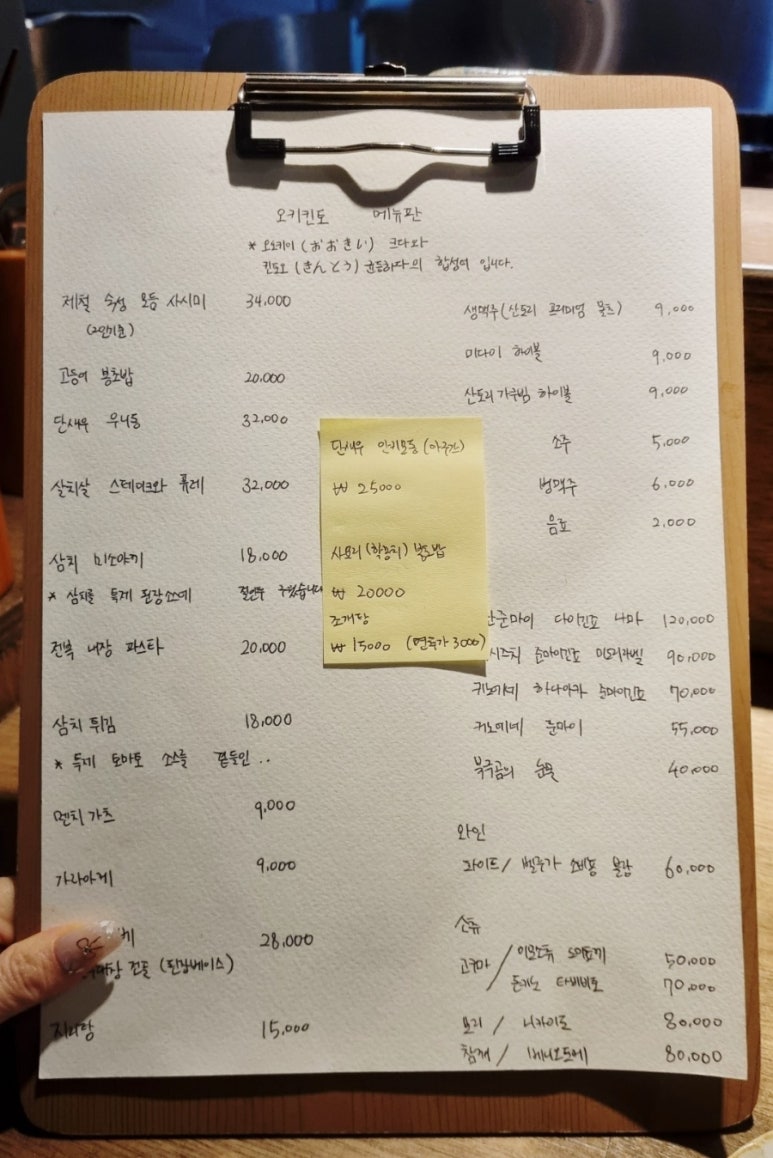 오키킨도 메뉴판
* 오오키이 (おおきい) 크다와
킨도오 (きんとう) 균등하다의 합성어 입니다.
제철 숙성 모듬 사시미 34,000
(2인기준)
고등어 봉초밥 20,000
단새우 우니동 32,000
살치살 스테이크와 퓨레 32,000
삼치 미소야끼 18,000
* 삼치를 특제 된장소스에
전복 내장 파스타 20,000
삼치 튀김 18,000
* 특제 토마토 소스를 곁들인..
멘치가츠 9,000
가라아게 9,000
28,000
전골 (된장베이스)
지리탕 15,000
단새우 (아구간)
₩ 25000
사요리 (학꽁치) 봉초밥
₩ 20000
조개탕
₩ 15000 (면추가 3000)
생맥주 (산토리 프리미엄 몰츠) 9,000
미다이 하이볼 9,000
산토리 가쿠빈 하이볼 9,000
소주 5,000
병맥주 6,000
음료 2,000
준마이 다이긴죠 나마 120,000
준마이긴죠 미도리라벨 90,000
하나아카 준마이긴죠 70,000
준마이 55,000
북극곰의 눈물 40,000
와인
화이트 / 소비뇽 블랑 60,000
소츄
고구마 / 50,000
70,000
보리 / 니카이도 80,000
참깨 / 베니오토메 80,000